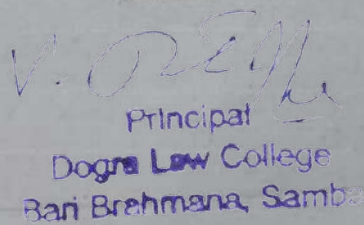 V.
Principal
Dogra Law College
Bari Brahmana, Samba